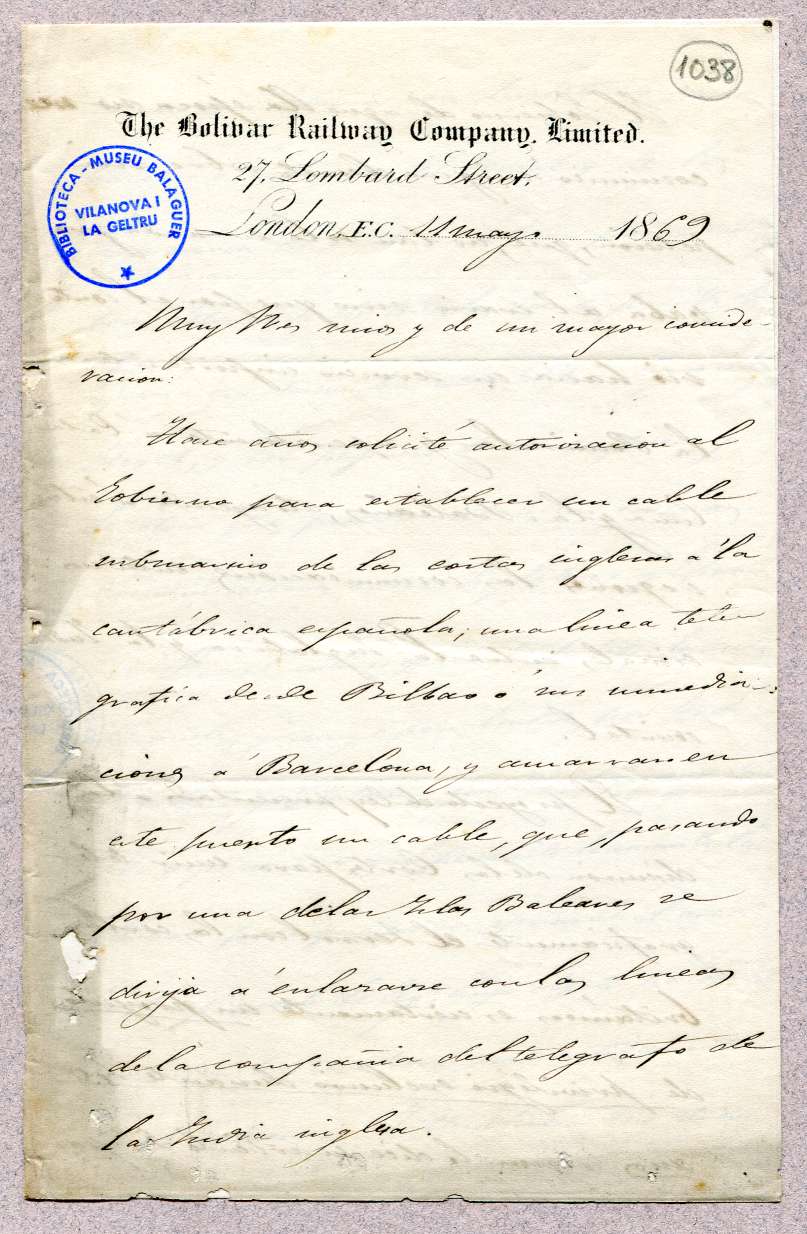 1038
The Bolivar Railway Company, Limited.
27, Lombard Street,
London, E.C. 11 mayo 1869
BIBLIOTECA - MUSEU BALAGUER
VILANOVA I
LA GELTRU
Muy Sres mios y de mi mayor conside-
racion:
Hace años solicité autorizacion al
Gobierno para establecer un cable
submarino de las costas inglesas á la
cantábrica española; una linea tele
grafica desde Bilbao ó sus inmedia-
ciones á Barcelona, y amarrar en
este puerto un cable, que, pasando
por una de las Islas Baleares se
dirija á enlazarse con las lineas
de la compañia del telegrafo de
la India inglesa.